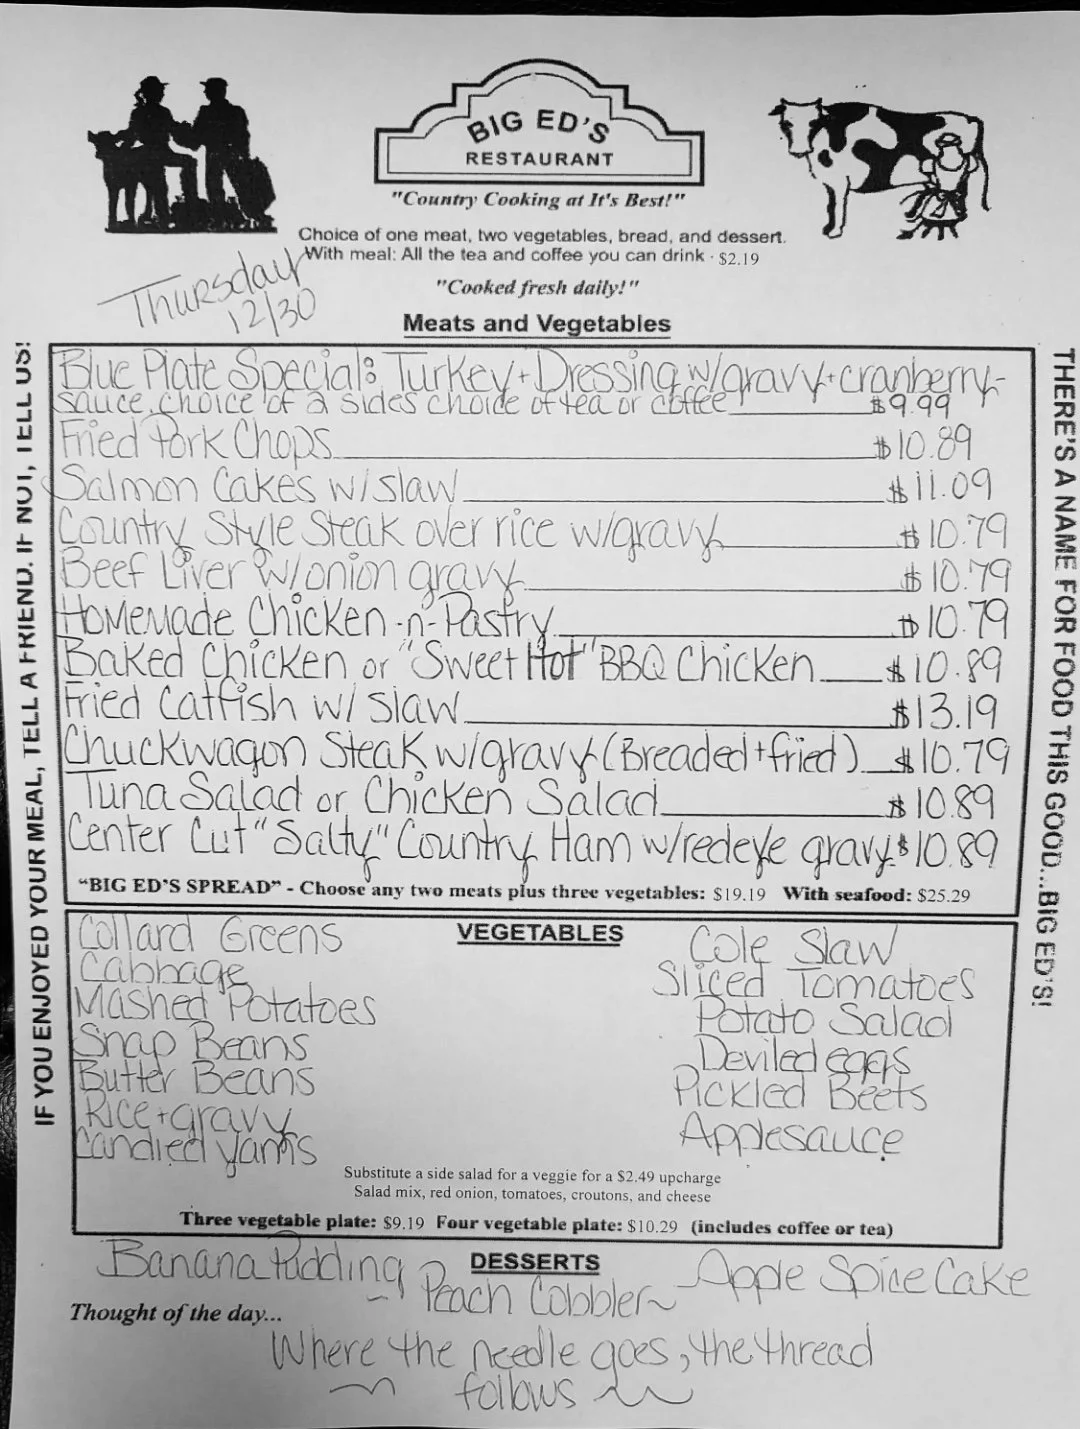 BIG ED'S
RESTAURANT
"Country Cooking at It's Best!"
Choice of one meat, two vegetables, bread, and dessert.
With meal: All the tea and coffee you can drink · $2.19
"Cooked fresh daily!"
Thursday
12/30
Meats and Vegetables
Blue Plate Special: Turkey + Dressing w/gravy + cranberry-
sauce, choice of 2 sides choice of tea or coffee $9.99
Fried Pork Chops $10.89
Salmon Cakes w/slaw $11.09
Country Style Steak over rice w/gravy $10.79
Beef Liver w/onion gravy $10.79
Homemade Chicken-n-Pastry $10.79
Baked Chicken or "Sweet Hot" BBQ Chicken $10.89
Fried Catfish w/ slaw $13.19
Chuckwagon Steak w/gravy (Breaded + fried) $10.79
Tuna Salad or Chicken Salad $10.89
Center Cut "Salty" Country Ham w/redeye gravy $10.89
"BIG ED'S SPREAD" - Choose any two meats plus three vegetables: $19.19 With seafood: $25.29
IF YOU ENJOYED YOUR MEAL, TELL A FRIEND. IF NOT, TELL US!
THERE'S A NAME FOR FOOD THIS GOOD...BIG ED'S!
VEGETABLES
Collard Greens
Cabbage
Mashed Potatoes
Snap Beans
Butter Beans
Rice + gravy
Candied Yams
Cole Slaw
Sliced Tomatoes
Potato Salad
Deviled eggs
Pickled Beets
Applesauce
Substitute a side salad for a veggie for a $2.49 upcharge
Salad mix, red onion, tomatoes, croutons, and cheese
Three vegetable plate: $9.19 Four vegetable plate: $10.29 (includes coffee or tea)
DESSERTS
Banana Pudding
Peach Cobbler~
Apple Spice Cake
Thought of the day...
Where the needle goes, the thread
follows